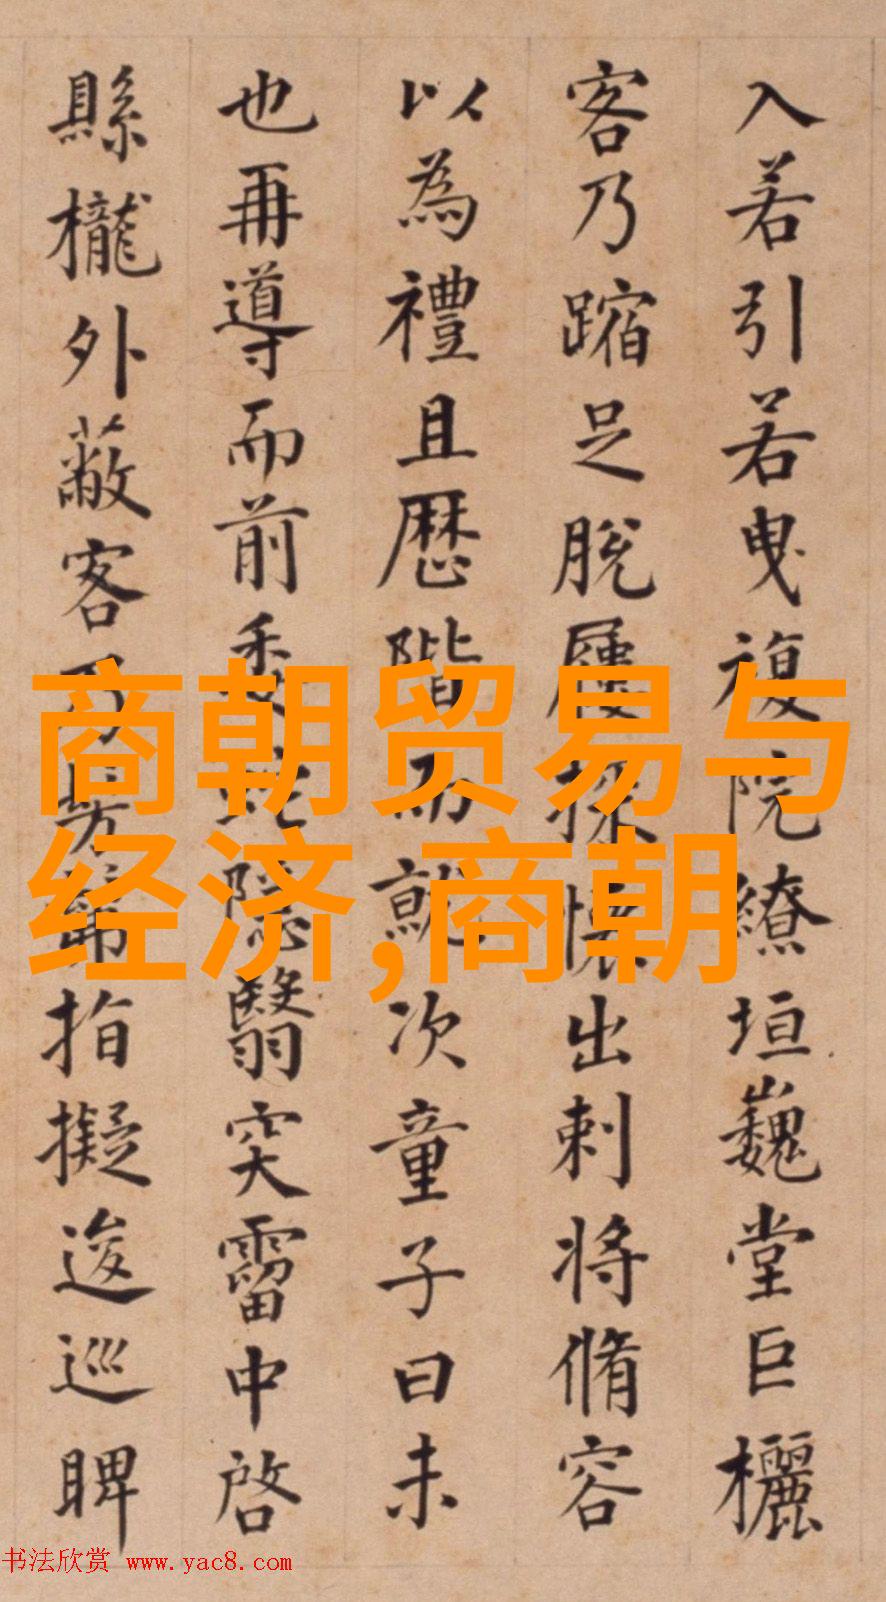 入若引若曳複院繚垣巍堂巨欐
客乃蹜足脫屨探懷出刺將脩容
以為禮且歷階而就次童子曰未
也再導而前委蛇隱翳突霤中啓
縣櫳外蔽客乃指擬逡巡睥
商朝贸易与
经济,商朝
书法欣赏 www.yac8.com